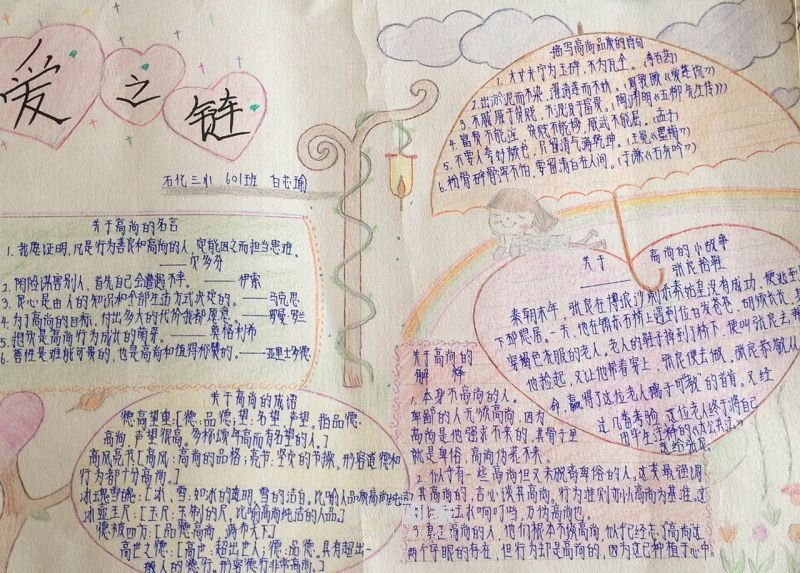 爱之链
石化三小 601班 白芯瑜
关于高尚的名言
1. 我愿证明，凡是行为善良和高尚的人，定能因之而担当患难。
——贝多芬
2. 阴险谋害别人，首先自己会遭起不幸。——伊索
3. 良心是由人的知识和全部生活方式决定的。——马克思
4. 为了高尚的目标，付出多大的代价我都愿意。——罗曼·罗兰
5. 把坎是高尚行为成长的萌芽。——莫格利希
6. 善性是难能可贵的，也是高尚和值得称赞的。——亚里士多德
关于高尚的成语
德高望重：[德：品德；望：名望，声望。指品德
高尚，声望很高。多称颂年高而有名望的人。]
高风亮节[高风：高尚的品格；亮节：坚贞的节操，形容道德和
行为都十分高尚。]
冰魂雪魄：[冰、雪：如冰的透明，雪的洁白。比喻人品质高尚纯
冰壶玉尺：[玉尺：玉制的尺，比喻高尚纯洁的人品。]
德被四方：[品德高尚，满布天下]
高世之德：[高世：超出世人；德：品德。具有超出一
般人的德行。形容德行非常高尚。]
描写高尚品质的诗句
1. 大丈夫宁为玉碎，不为瓦全。（李百药）
2. 出淤泥而不染，濯清涟而不妖。（周敦颐《爱莲说》）
3. 不戚戚于贫贱，不汲汲于富贵。（陶渊明《五柳先生传》）
4. 富贵不能淫，贫贱不能移，威武不能屈。（孟子）
5. 不要人夸好颜色，只留清气满乾坤。（王冕《墨梅》）
6. 粉骨碎骨浑不怕，要留清白在人间。（于谦《石灰吟》）
关于高尚的小故事
——张良拾鞋
秦朝末年，张良在博浪沙刺杀秦始皇没有成功，便逃到
下邳隐居。一天，他在镇东石桥上遇到位白发苍苍、胡须长长、
穿褐色衣服的老人。老人的鞋子掉到了桥下，便叫张良去
他捡起，又让他帮着穿上，张良便去做，张良恭敬从
命，赢得了这位老人孺子可教"的首肯。又经
过几番考验，这位老人终于将自己
用毕生注释的《太公兵法》
送给张良。
关于高尚的
解释
1. 本身不高尚的人。
卑鄙的人无须高尚，因为
高尚是他强求不来的，其骨子里
就是卑俗，高尚伪装不来。
2. 似乎有一些高尚但又未脱离卑俗的人，这类最强调
其高尚的，言必谈其高尚。行为准则亦以高尚为基准，这
水响叮当，万伪高尚也。
3. 真正高尚的人，他们根本不谈高尚，似乎已经忘了高尚这
两个字眼的存在，但行为却是高尚的，因为这已种植于心中。